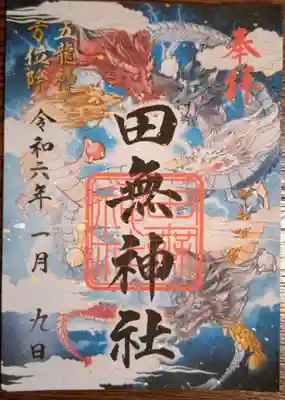 奉拝
田無神社
五龍神
方位除
令和六年一月九日